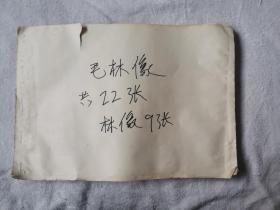 毛林像
共22张
林像9张